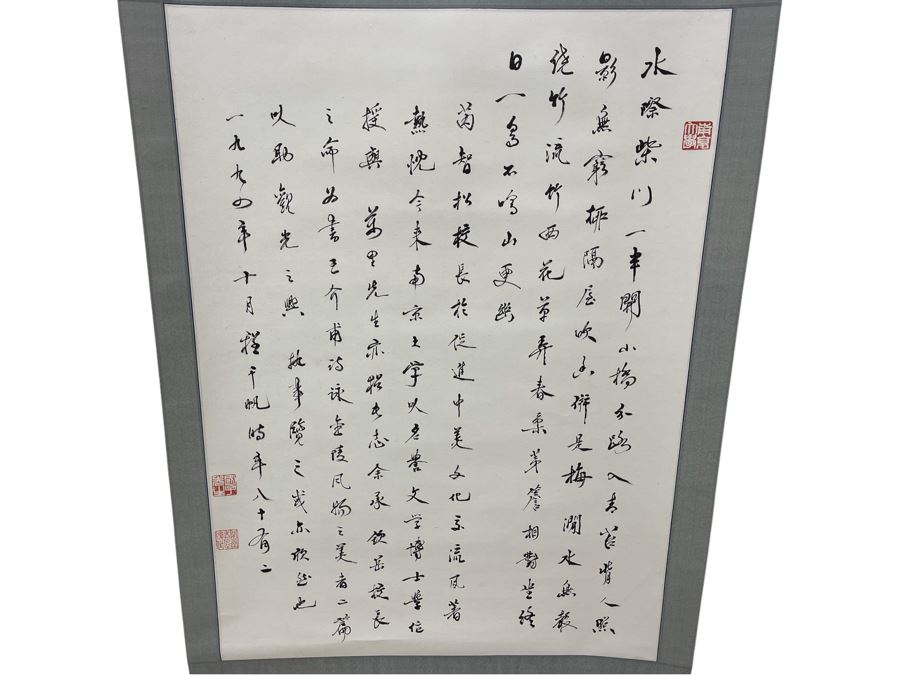 水際柴門一半開小橋分路入青苔背人照
影無窮柳隔屋吹香併是梅 澗水無聲
繞竹流竹西花草弄春柔茅簷相對坐終
日一鳥不鳴山更幽
芮智松校長於促進中美文化交流夙著
熱忱今來南京大学以名譽文学博士學位
授與 萬里先生亦志余承 欽岳校長
之命为書王介甫詩詠金陵風物之美者二篇
以助觀光之興 執事覽之或亦欣然也
一九九四年十月程千帆時年八十有二